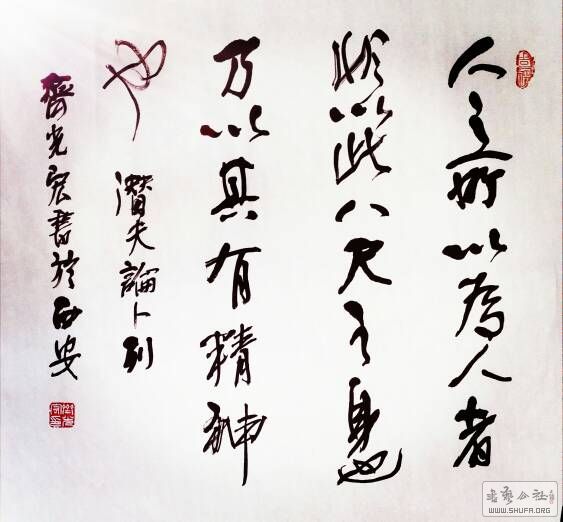 人之所以為人者
非以此八尺之身也
乃以其有精神
也 潛夫論卜列
齊光宏書於西安
书艺公社
WWW.SHUFA.ORG